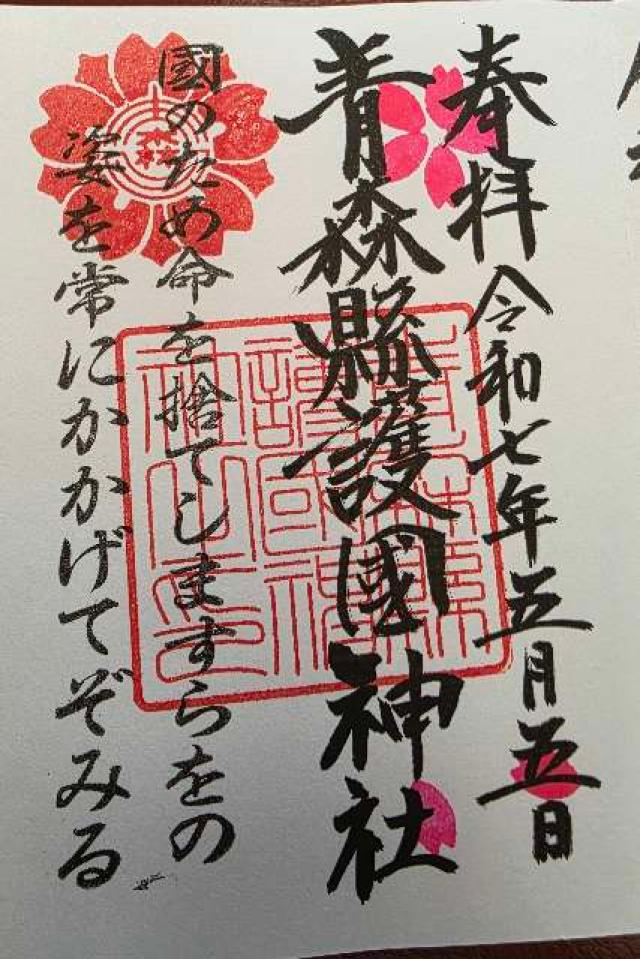 奉拝 令和七年五月五日
青森縣護國神社
國のため命を捨てしますらをの
姿を常にかかげてぞみる
青森縣護國神社之印
森